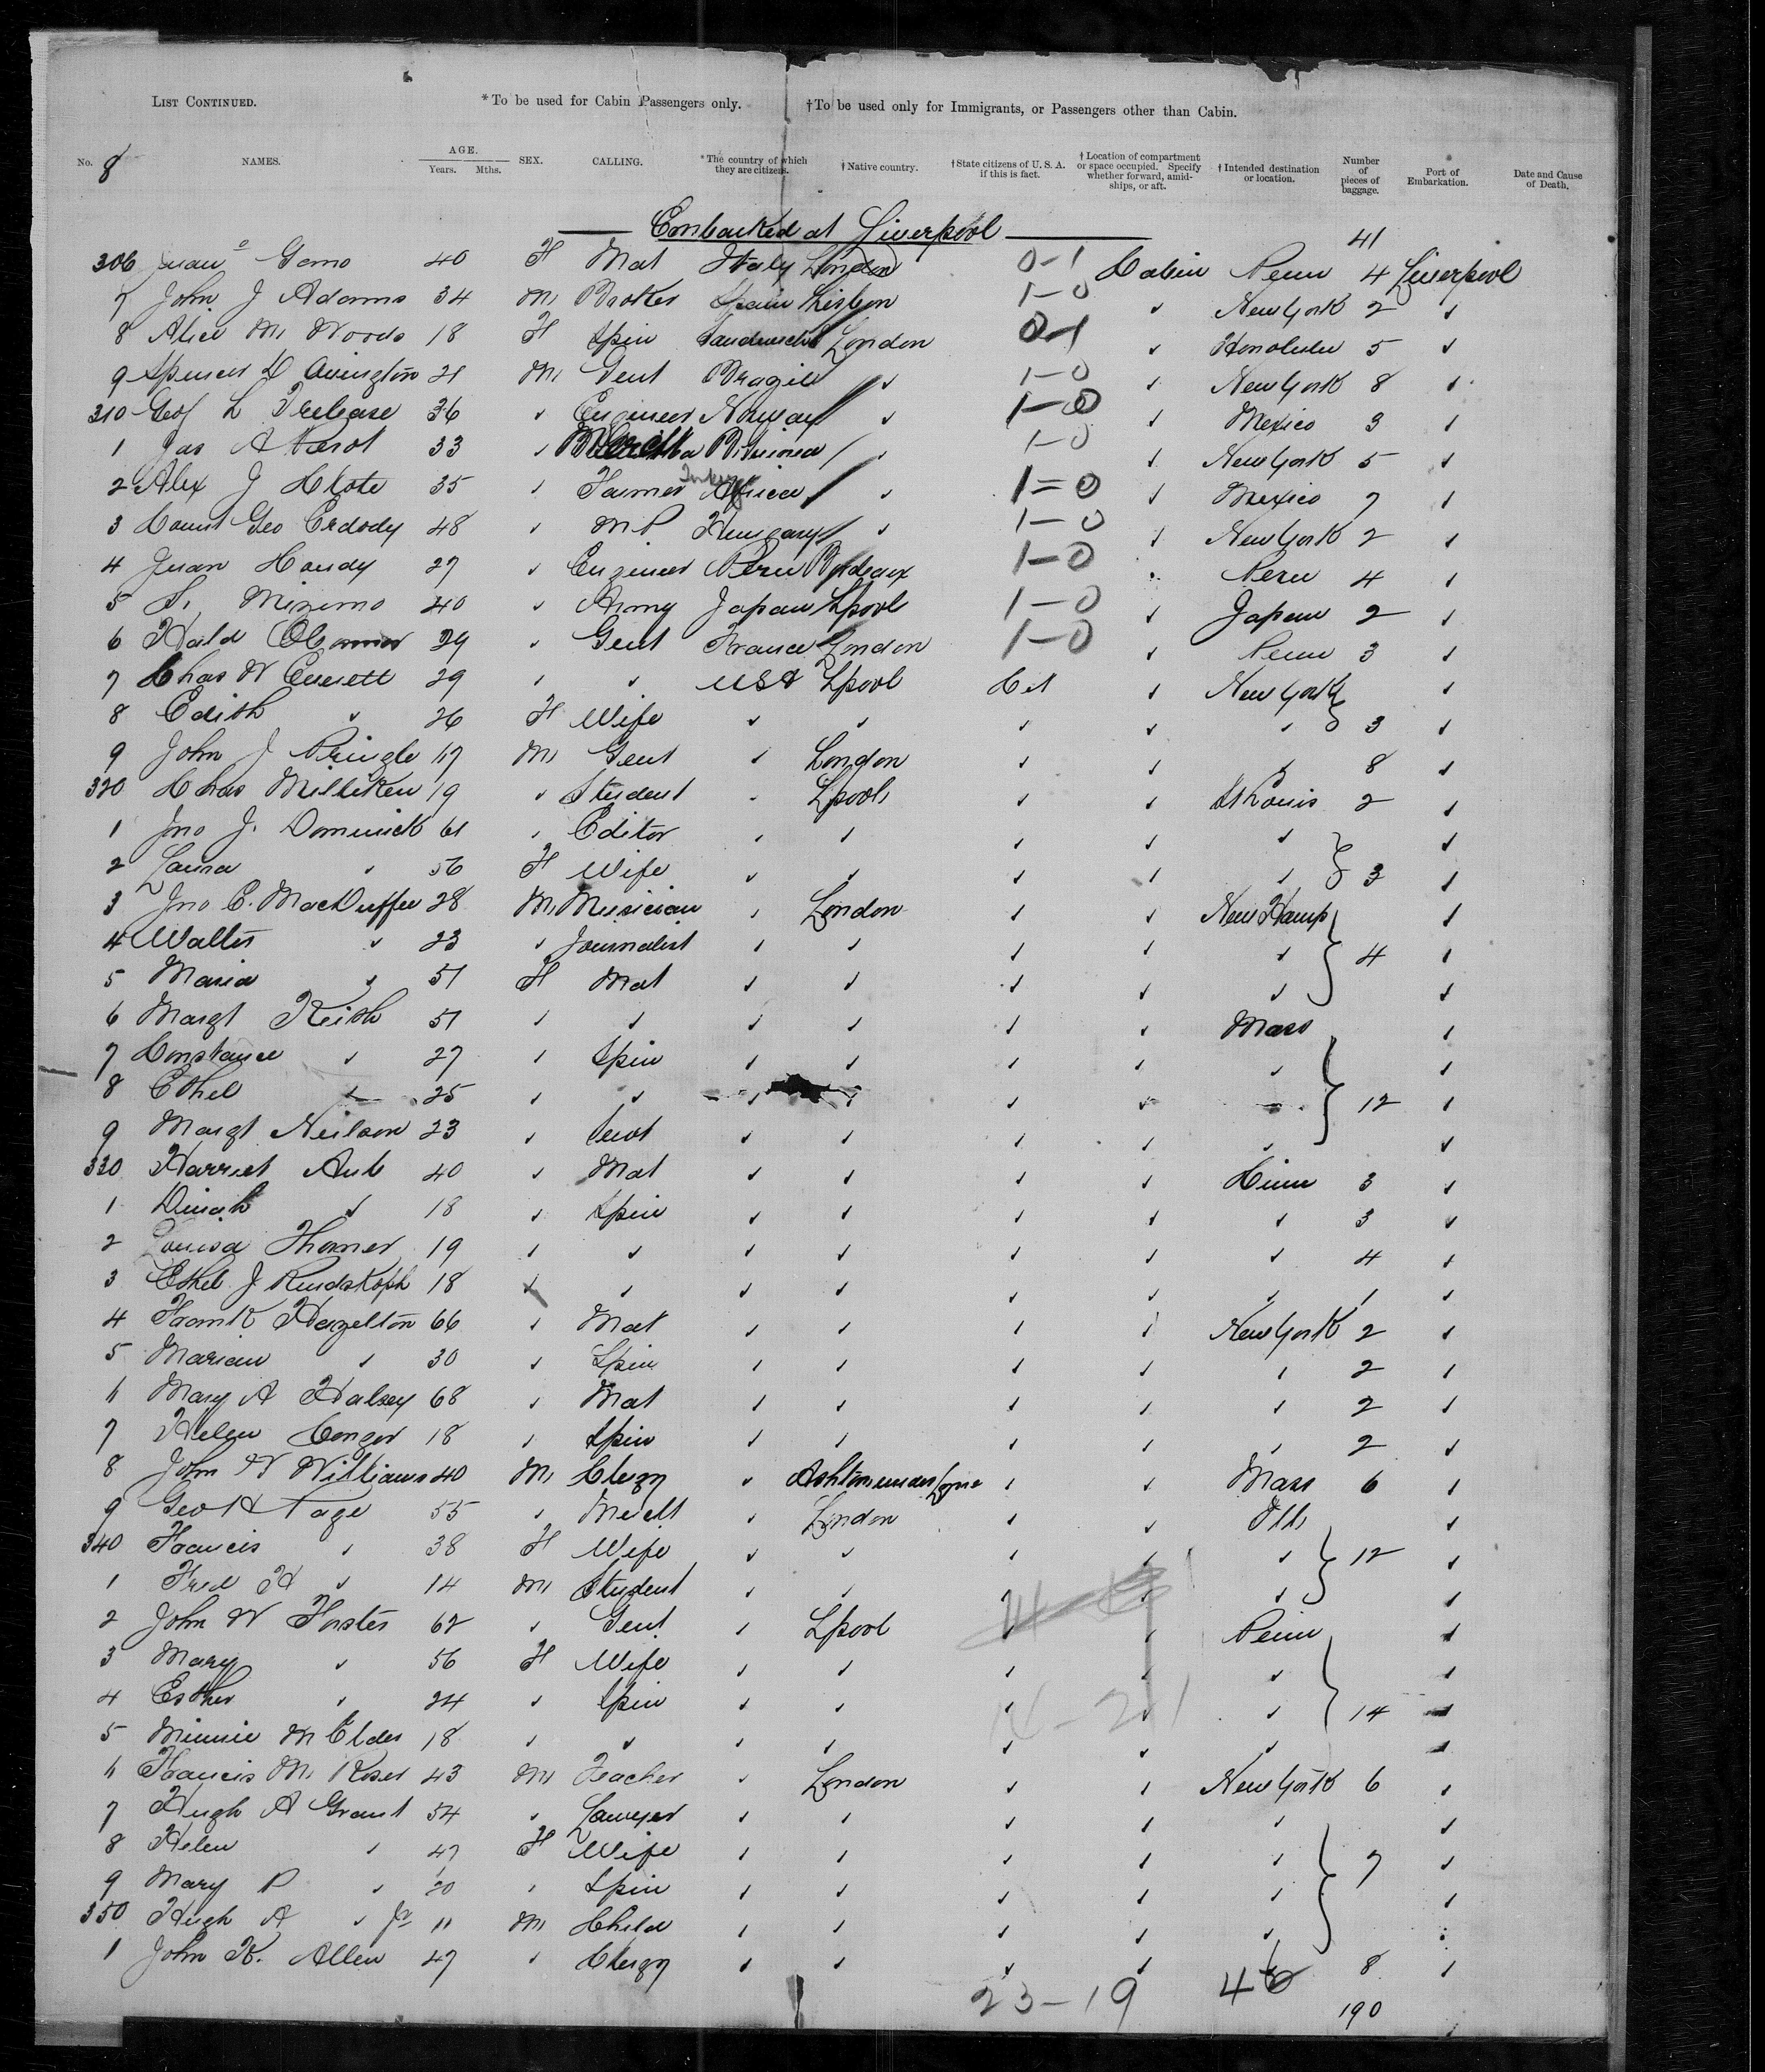 LIST CONTINUED. *To be used for Cabin Passengers only. †To be used only for Immigrants, or Passengers other than Cabin.
No. 8 NAMES. AGE. Years. Mths. SEX. CALLING. *The country of which they are citizens. †Native country. †State citizens of U. S. A. if this is fact. †Location of compartment or space occupied. Specify whether forward, amidships, or aft. †Intended destination or location. Number of pieces of baggage. Port of Embarkation. Date and Cause of Death.
Embarked at Liverpool
41
306 Juan Gomo 40 F Mat Italy London 0-1 Cabin Penn 4 Liverpool
7 John J Adams 34 M Broker Spain Lisbon 1-0 " New York 2 "
8 Alice M Woods 18 F Spin London 0-1 " Honolulu 5 "
9 Spencer D 21 M Gent Brazil " 1-0 " New York 8 "
310 Geo L Trelease 36 " Engineer Norway " 1-0 " Mexico 3 "
1 Jas A 33 " " 1-0 " New York 5 "
2 Alex J Clote 35 " Farmer Turkey Africa " 1=0 " Mexico 7 "
3 Count Geo Erdody 48 " M.P. Hungary " 1-0 " New York 2 "
4 Juan Handy 27 " Engineer Peru Bordeaux 1-0 " Peru 4 "
5 S. Mizumo 40 " Army Japan Lpool 1-0 " Japan 2 "
6 Hald 29 " Gent France London 1-0 " Penn 3 "
7 Chas W Everett 29 " " USA Lpool Cit " New York "
8 Edith " 26 F Wife " " " " " 3 "
9 John J Pringle 17 M Gent " London " " " 8 "
320 Chas Milliken 19 " Student " Lpool " " St Louis 2 "
1 Jno J. Dominick 61 " Editor " " " " " "
2 Laura " 56 F Wife " " " " " 3 "
3 Jno C. MacDuffee 28 M Musician " London " " New Hamp "
4 Walter " 23 " Journalist " " " " " 4 "
5 Maria " 51 F Mat " " " " " "
6 Margt Keith 51 " " " " " " Mass "
7 Constance " 27 " Spin " " " " " "
8 Ethel " 25 " " " " " " " 12 "
9 Margt Neilson 23 " Servt " " " " " "
330 Harriet Aub 40 " Mat " " " " Cinn 3 "
1 Dinah " 18 " Spin " " " " " 3 "
2 Louisa Thomer 19 " " " " " " " 4 "
3 Ethel J Rindskoph 18 " " " " " " " 1 "
4 Frank Hazelton 66 " Mat " " " " New York 2 "
5 Marian " 30 " Spin " " " " " 2 "
6 Mary A Halsey 68 " Mat " " " " " 2 "
7 Helen Conger 18 " Spin " " " " " 2 "
8 John W Williams 40 M Clergy " Ashton under Lyne " " Mass 6 "
9 Geo H Page 55 " Mercht " London " " Ills "
340 Francis " 38 F Wife " " " " " 12 "
1 Fred H " 14 M Student " " " " " "
2 John W Foster 62 " Gent " Lpool " " Penn "
3 Mary " 56 F Wife " " " " " "
4 Esther " 24 " Spin " " " " " 14 "
5 Minnie M Elder 18 " " " " " " " "
6 Francis M Roser 43 M Teacher " London " " New York 6 "
7 Hugh A Grant 54 " Lawyer " " " " " "
8 Helen " 47 F Wife " " " " " 7 "
9 Mary P " 20 " Spin " " " " " "
350 Hugh A " Jr 11 M Child " " " " " "
1 John K. Allen 47 " Clergy " " " " " 8 "
23-19 46
190